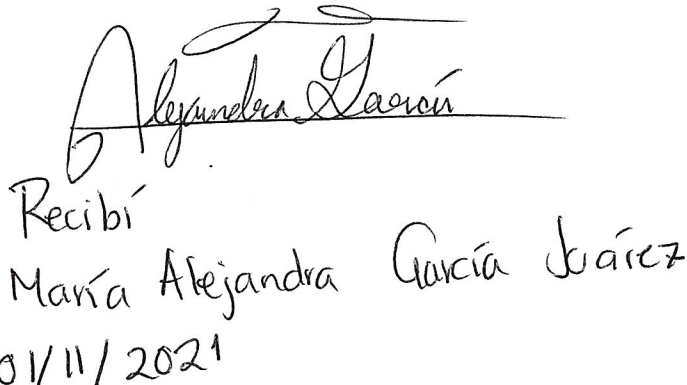 Alejandra García
Recibí
María Alejandra García Juárez
01/11/2021